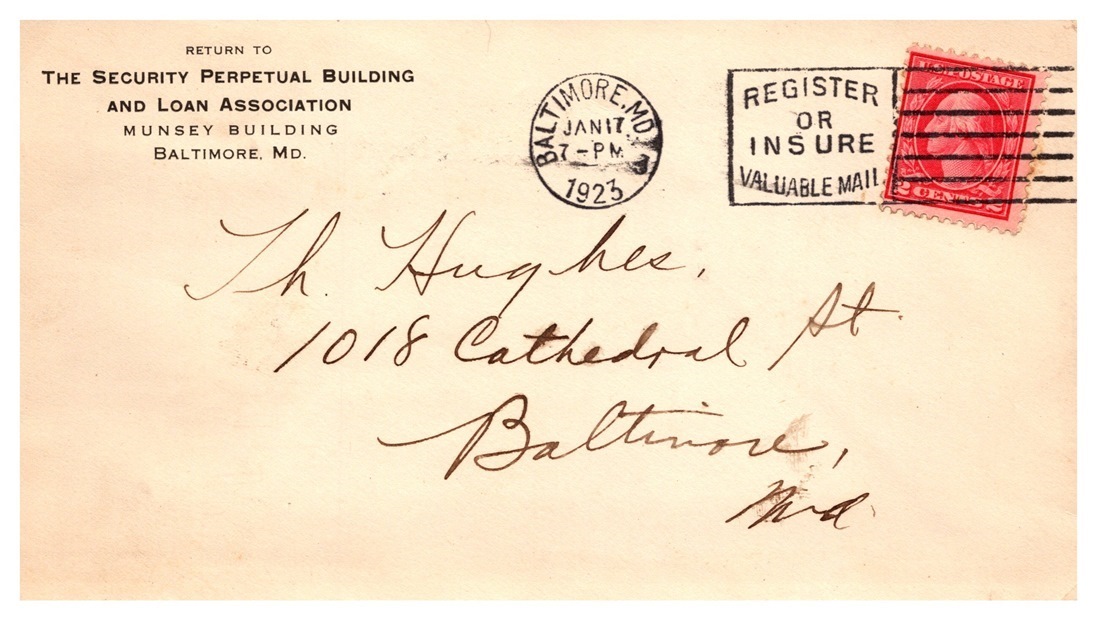 RETURN TO
THE SECURITY PERPETUAL BUILDING
AND LOAN ASSOCIATION
MUNSEY BUILDING
BALTIMORE, MD.
BALTIMORE, MD
JAN 17
7-PM
1923
REGISTER
OR
INSURE
VALUABLE MAIL
U.S. POSTAGE
2 CENTS 2
Th. Hughes,
1018 Cathedral St.
Baltimore,
Md.